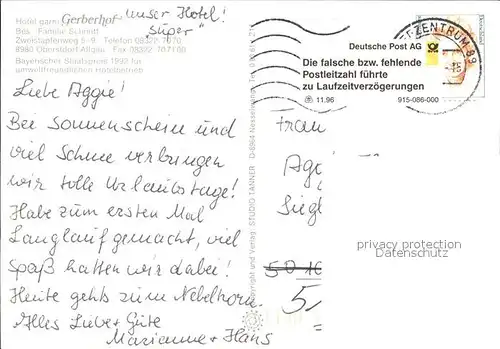 unser Hotel!
Hotel garni Gerberhof "Super"
Bes. Familie Schmidt
Zweistapfenweg 5-9 Telefon 08322 7070
8980 Oberstdorf Allgäu Fax 08322 707100
Bayerischer Staatspreis 1992 für
umweltfreundlichen Hotelbetrieb
Liebe Aggie!
Bei Sonnenschein und
viel Schnee verbringen
wir tolle Urlaubstage!
Habe zum ersten Mal
Langlauf gemacht, viel
Spaß hatten wir dabei!
Heute gehts zum Nebelhorn.
Alles Liebe + Gute
Marianne + Hans
Copyright und Verlag: STUDIO TANNER D-8964 Nesselwang
Deutsche Post AG
Die falsche bzw. fehlende
Postleitzahl führte
zu Laufzeitverzögerungen
11.96 915-086-000
ZENTRUM 89
Frau
Ag
Siegl
privacy protection
Datenschutz
50
5